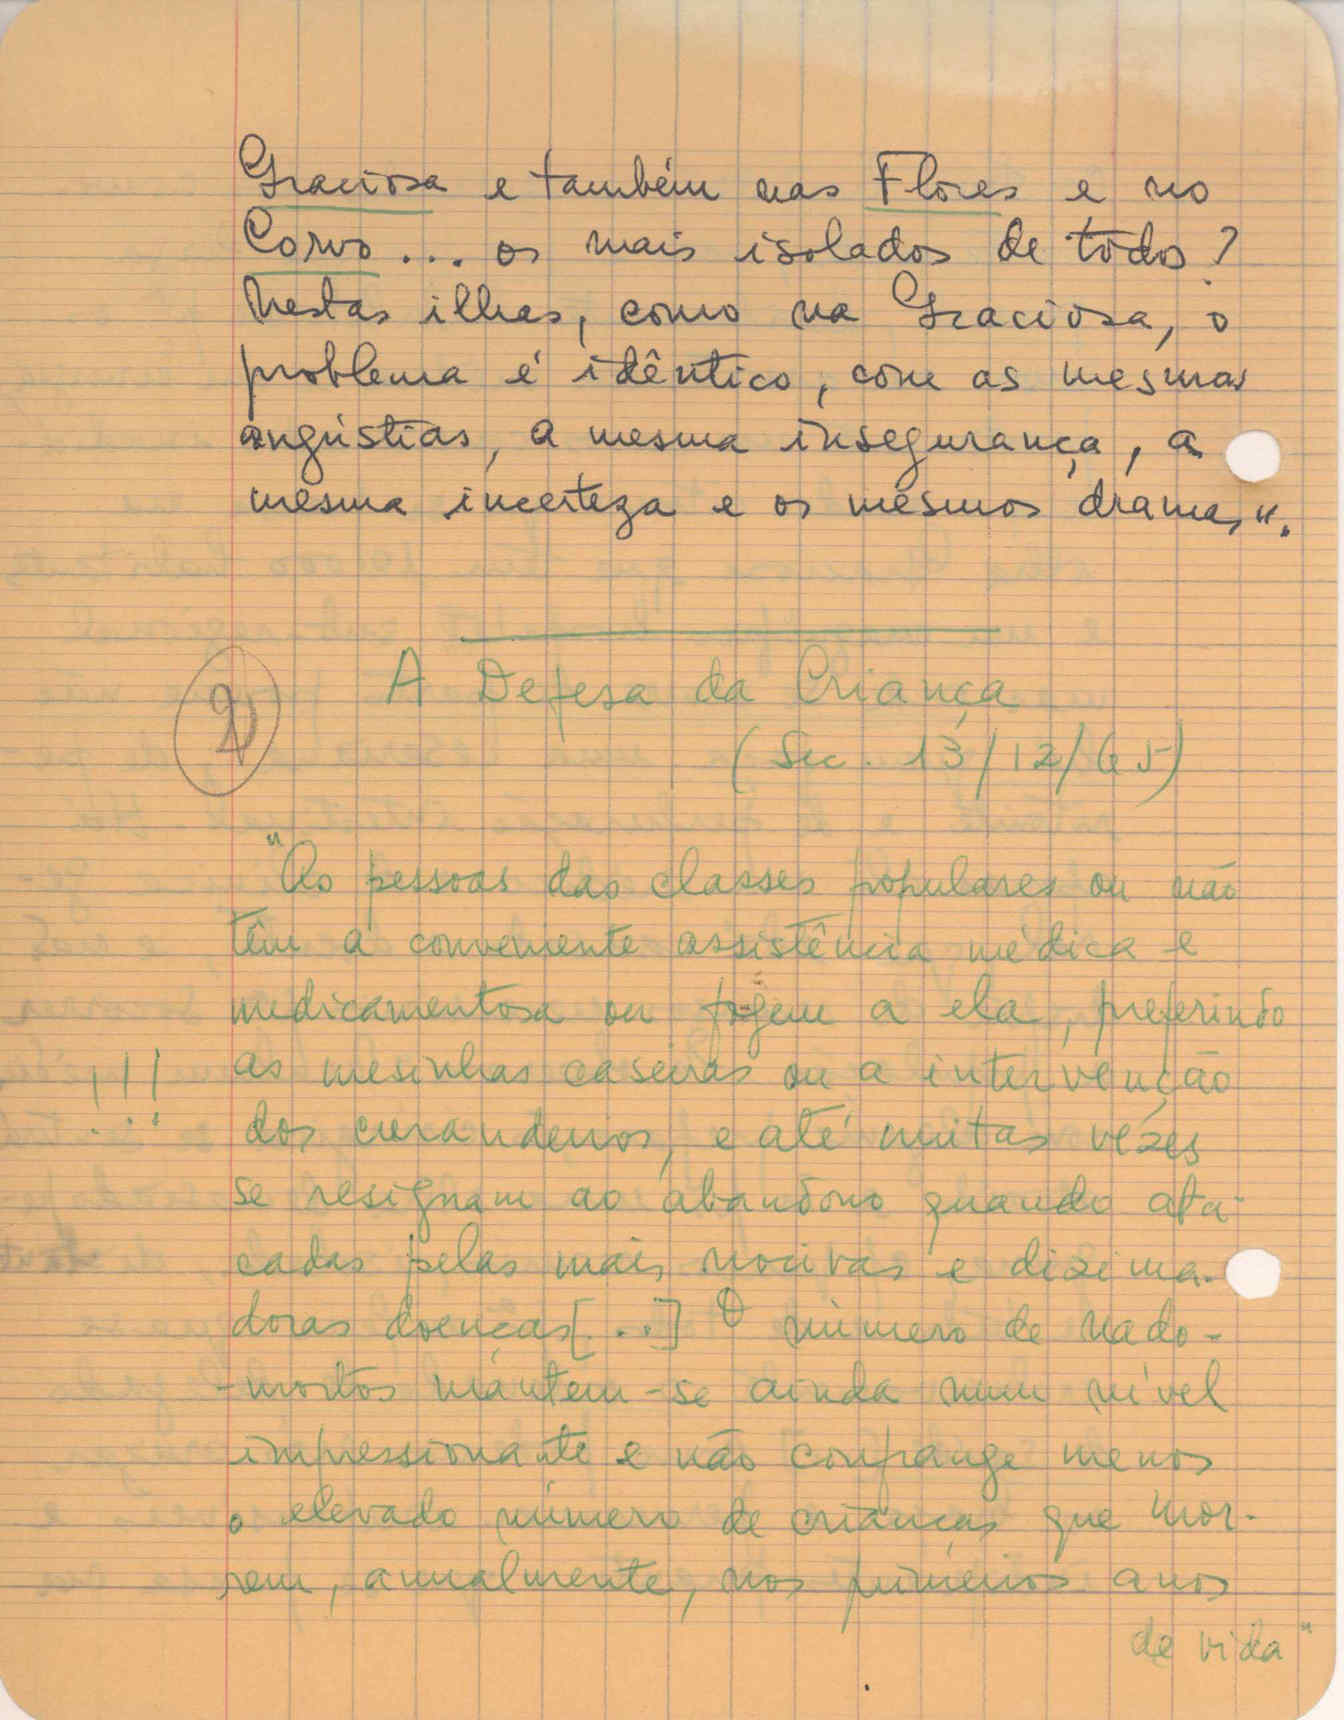 Graciosa e também nas Flores e no
Corvo... os mais isolados de todos?
Nestas ilhas, como na Graciosa, o
problema é idêntico, com as mesmas
angústias, a mesma insegurança, a
mesma incerteza e os mesmos dramas".
2)
A Defesa da Criança
(Sec. 13/12/65)
"As pessoas das classes populares ou não
têm a conveniente assistência médica e
medicamentosa ou fogem a ela, preferindo
as mesinhas caseiras ou a intervenção
!!! dos curandeiros, e até muitas vezes
se resignam ao abandono quando ata-
cadas pelas mais nocivas e dizima-
doras doenças[...] O número de nado-
-mortos mantém-se ainda num nível
impressionante e não confrange menos
o elevado número de crianças que mor-
rem, anualmente, nos primeiros anos
de vida"